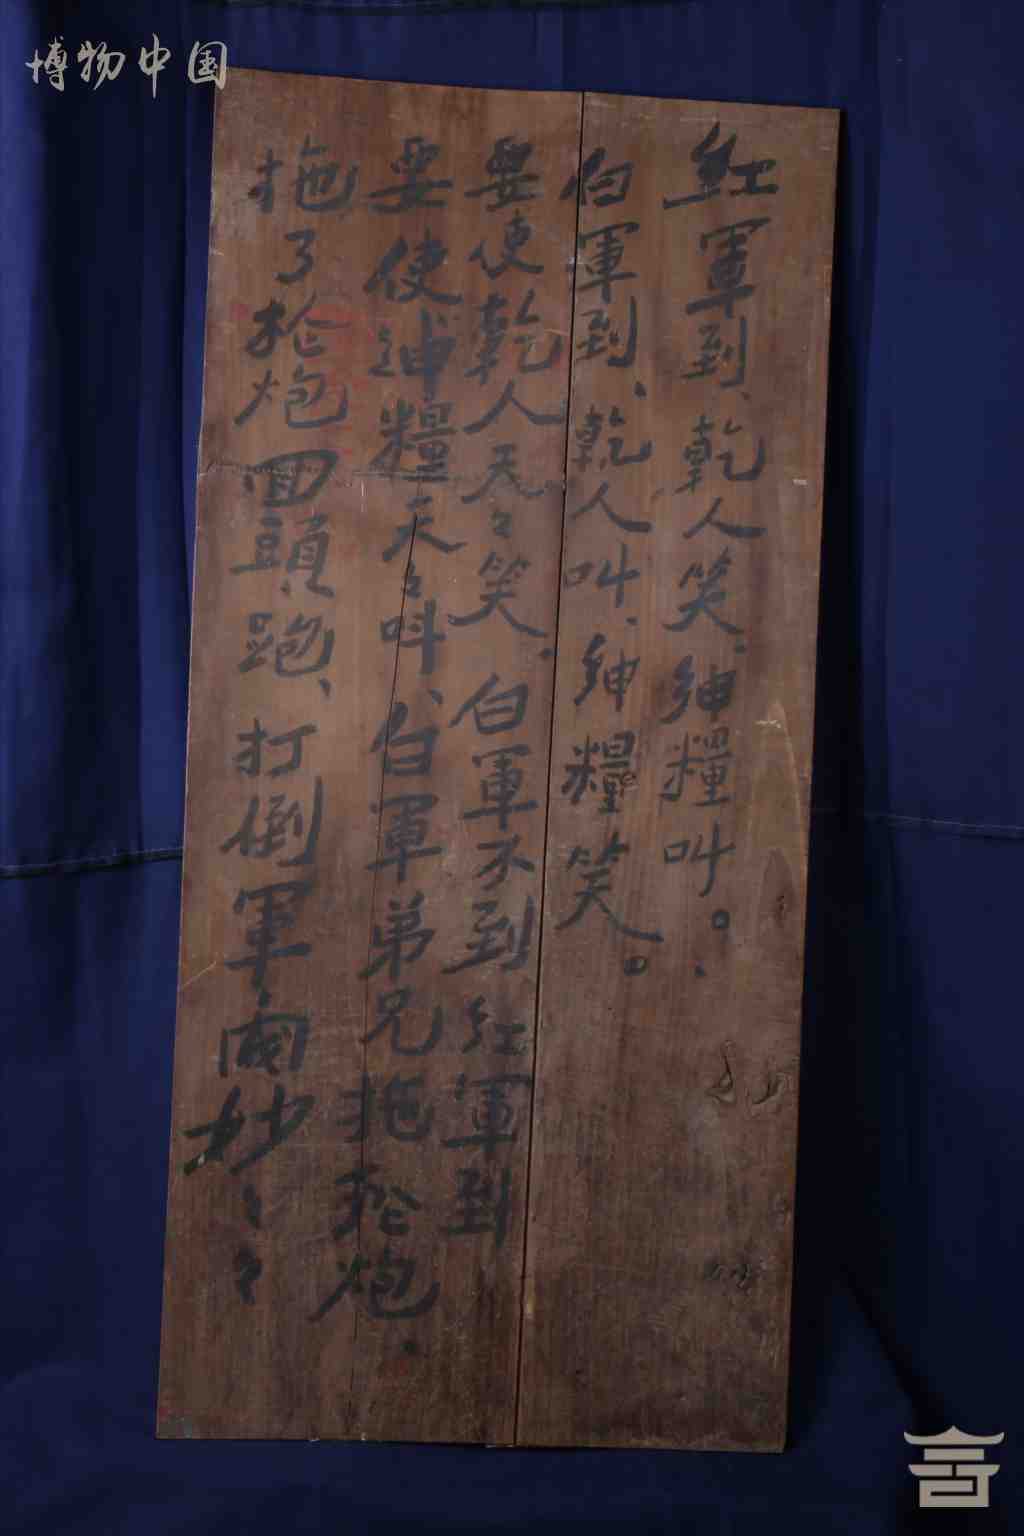 博物中国
紅軍到、乾人笑、紳糧叫。
白軍到、乾人叫、紳糧笑。
要使乾人天々笑、白軍不到紅軍到
要使紳糧天々叫、白軍弟兄拖槍炮、
拖了槍炮回頭跑、打倒軍閥妙々々